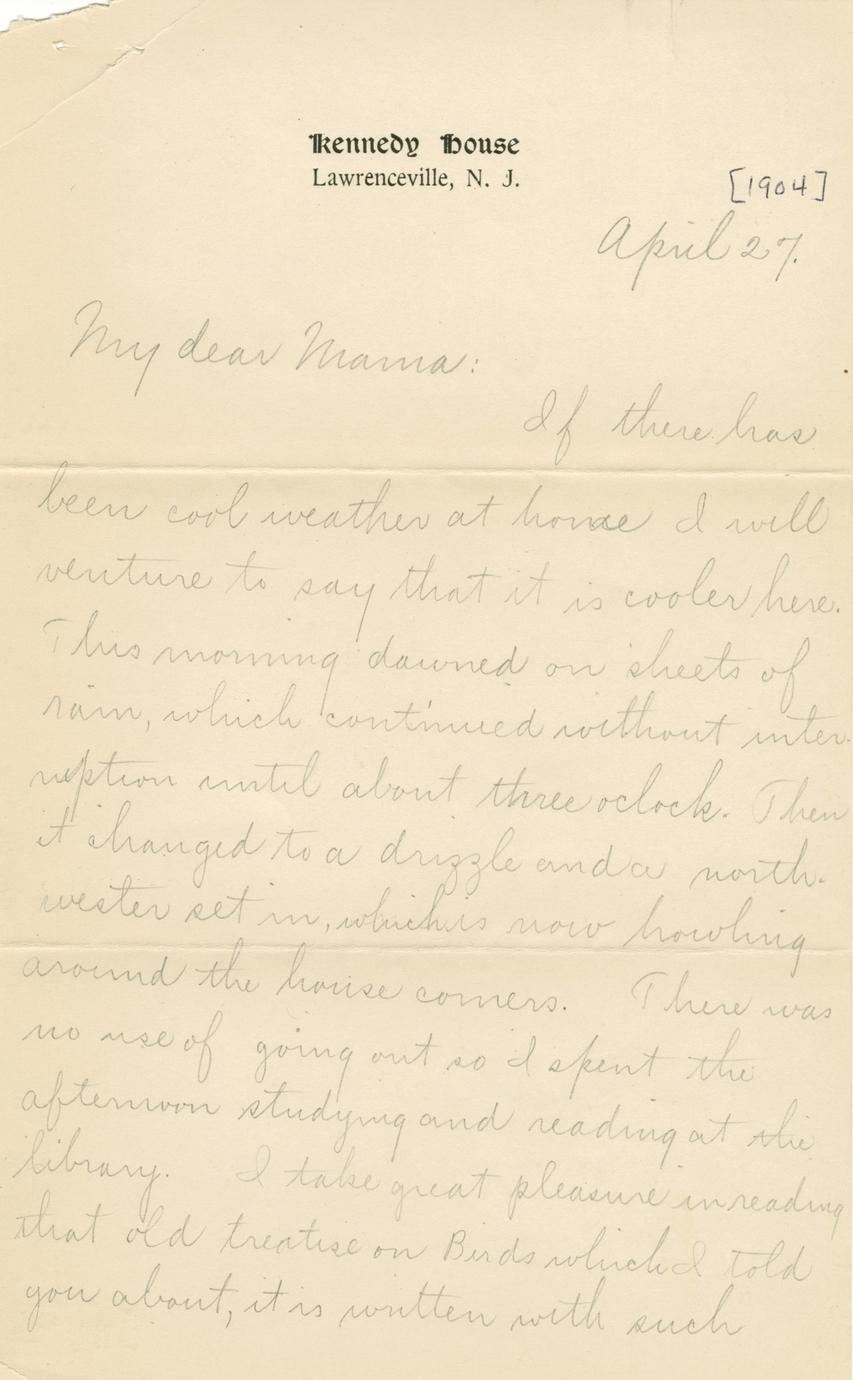 Kennedy House
Lawrenceville, N. J.
[1904]
April 27.
My dear Mama:
If there has
been cool weather at home I will
venture to say that it is cooler here.
This morning dawned on sheets of
rain, which continued without inter-
ruption until about three oclock. Then
it changed to a drizzle and a north-
wester set in, which is now howling
around the house corners. There was
no use of going out so I spent the
afternoon studying and reading at the
library. I take great pleasure in reading
that old treatise on Birds which I told
you about, it is written with such